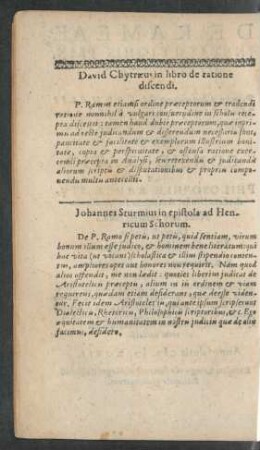 David Chytræus in libro de ratione
discendi.
P. Ramus etiamsi ordine præceptorum & tradendi
ratione nonnihil à vulgari consuetudine in scholis rece-
pta discessit: tamen haud dubie præceptorum, quæ inpri-
mis ad recte judicandum & disserendum necessaria sunt,
paucitate & facilitate & exemplorum illustrium boni-
tate, copia & perspicuitate, & ostensa ratione exer-
endi præcepta in Analysi, seu retexendis & judicandis
aliorum scriptis & disputationibus & propriis compo-
nendis multis antecellit.
Johannes Sturmius in epistola ad Hen-
ricum Schorum.
De P. Ramo si petis, ut petis, quid sentiam, virum
bonum illum esse judico, & hominem bene literatum: qui
huic vitæ (ut vocant) scholastica & illius stipendiis conten-
tus, ampliores opes aut honores non requirit. Nam quod
alios offendit, me non lædit: quoties liberum judicat de
Aristotelicis præceptis, alium in iis ordinem & viam
requirens, quædam etiam desiderans, quæ deesse viden-
tur. Fecit idem Aristoteles in iis, qui ante ipsum scripserunt
Dialecticis, Rhetoricis, Philosophicis scriptoribus, &c. Ego
æquitatem & humanitatem in istis judiciis quæ de aliis
facimus, desidero.